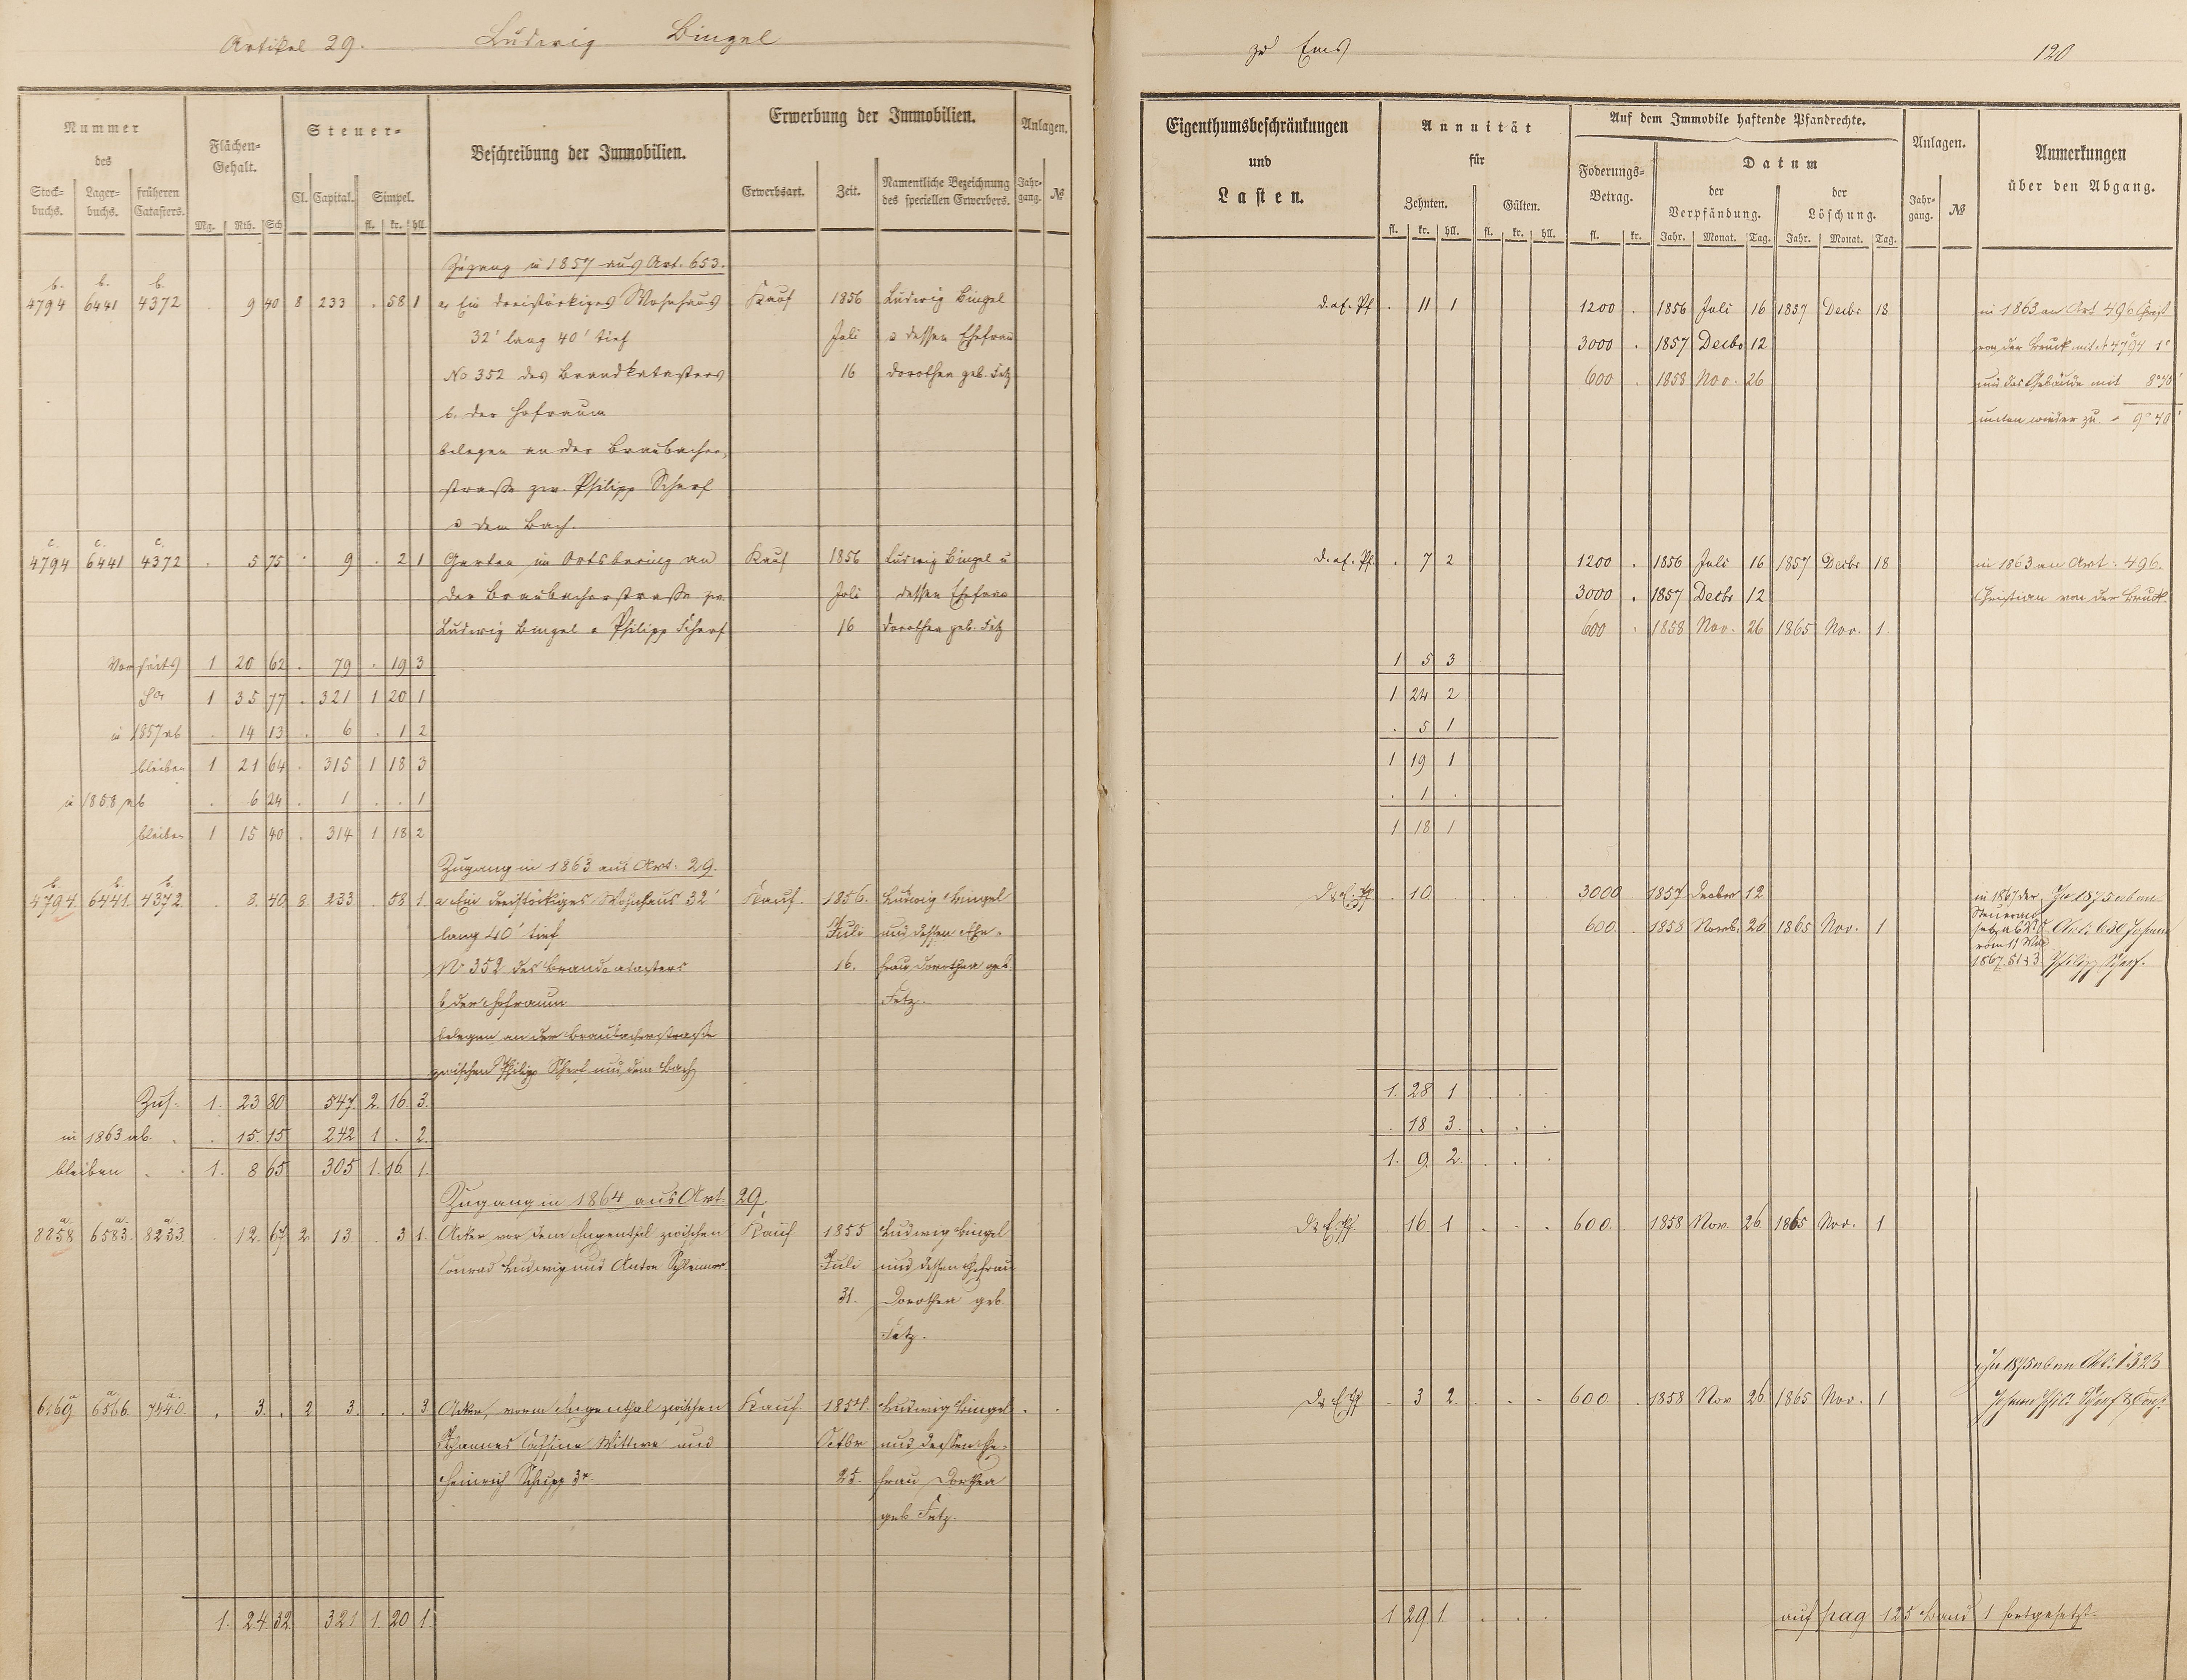 Artikel 29. Ludwig Bingel
zu Ems 120
Nummer des
Stockbuchs. Lagerbuchs. früheren Catasters.
Flächen-Gehalt.
Mg. Rth. Sch
Steuer-
Cl. Capital. Simpel.
fl. kr. hll.
Beschreibung der Immobilien.
Erwerbung der Immobilien.
Erwerbsart. Zeit. Namentliche Bezeichnung des speciellen Erwerbers.
Anlagen.
Jahrgang. №
Eigenthumsbeschränkungen und Lasten.
Annuität für
Zehnten. Gülten.
fl. kr. hll. fl. kr. hll.
Auf dem Immobile haftende Pfandrechte.
Foderungs-Betrag.
fl. kr.
Datum
der Verpfändung. der Löschung.
Jahr. Monat. Tag. Jahr. Monat. Tag.
Anlagen.
Jahrgang. №
Anmerkungen über den Abgang.
Zugang in 1857 aus Art. 653.
b. b. b.
4794 6441 4372 . 9 40 8 233 . 58 1 a. Ein dreistöckiges Wohnhaus Kauf 1856 Ludwig Bingel
32' lang 40' tief Juli u dessen Ehefrau
No 352 des Brandkatasters 16 Dorothea geb. Fetz
b. der Hofraum
belegen an der Braubacher-
straße zw. Philipp Scherf
u dem Bach.
. 11 1 1200 . 1856 Juli 16 1857 Decbr 18 in 1863 an Art 496
3000 . 1857 Decbr 12 von der Bruck mit 4794
600 . 1858 Nov. 26 und das Gebäude mit
unten wieder zu 9° 40'
c. c. c.
4794 6441 4372 . 5 75 . 9 . 2 1 Garten im Ortsbering an Kauf 1856 Ludwig Bingel u
der Braubacherstraße zw. Juli dessen Ehefrau
Ludwig Bingel u Philipp Scherf 16 Dorothea geb. Fetz
. 7 2 1200 . 1856 Juli 16 1857 Decbr 18 in 1863 an Art. 496.
3000 . 1857 Decbr 12 Christian von der Bruck.
600 . 1858 Nov. 26 1865 Nov. 1.
1 20 62 . 79 . 19 3 1 5 3
Sa 1 35 77 . 321 1 20 1 1 24 2
in 1857 ab . 14 13 . 6 . 1 2 . 5 1
bleiben 1 21 64 . 315 1 18 3 1 19 1
in 1858 ab . 6 24 . 1 . . 1 . 1 .
bleiben 1 15 40 . 314 1 18 2 1 18 1
Zugang in 1863 aus Art. 29.
b. b. b.
4794. 6441. 4372. . 8. 40 8. 233 . 58 1. a. Ein dreistöckiges Wohnhaus 32' Kauf. 1856. Ludwig Bingel
lang 40' tief Juli und dessen Ehe-
No 352 des Brandcatasters 16. frau Dorothea geb.
b der Hofraum Fetz.
belegen an der Braubacherstraße
zwischen Philipp Scherf und dem Bach
. 10 3000 1857 Decbr 12
600. 1858 Novb. 26 1865 Nov. 1
in 1867 der
Steuerung
vom 11 Mai
1867
In 1875 ab an
Art. 630 Johann
Philipp Scherf.
Zus. 1. 23 80 547. 2. 16. 3. 1. 28 1
in 1863 ab. . 15. 15 242 1 . 2. . 18 3.
bleiben 1. 8 65 305 1. 16 1. 1. 9. 2.
Zugang in 1864 aus Art. 29.
a. a. a.
8258. 6583. 8233. . 12. 67 2. 13. . 3 1. Acker vor dem Ingenthal zwischen Kauf 1855 Ludwig Bingel
Conrad Ludwig und Anton Juli und dessen Ehefrau
31. Dorothea geb.
Fetz.
16 1 600. 1858 Nov. 26 1865 Nov. 1
a. a. a.
6169 6566. 7440. . 3. . 2 3. . . 3 Acker, vorm Ingenthal zwischen Kauf. 1854. Ludwig Bingel
Johannes Wittwe und Octbr und dessen Ehe-
Heinrich Schupp 3r 25. frau Dorothea
geb. Fetz.
3 2. 600 1858 Nov 26 1865 Nov. 1
In 1875 ab an Art. 1323
1. 24 32. 321 1. 20 1. 1 29 1.
auf pag 125 Band 1 fortgesetzt.